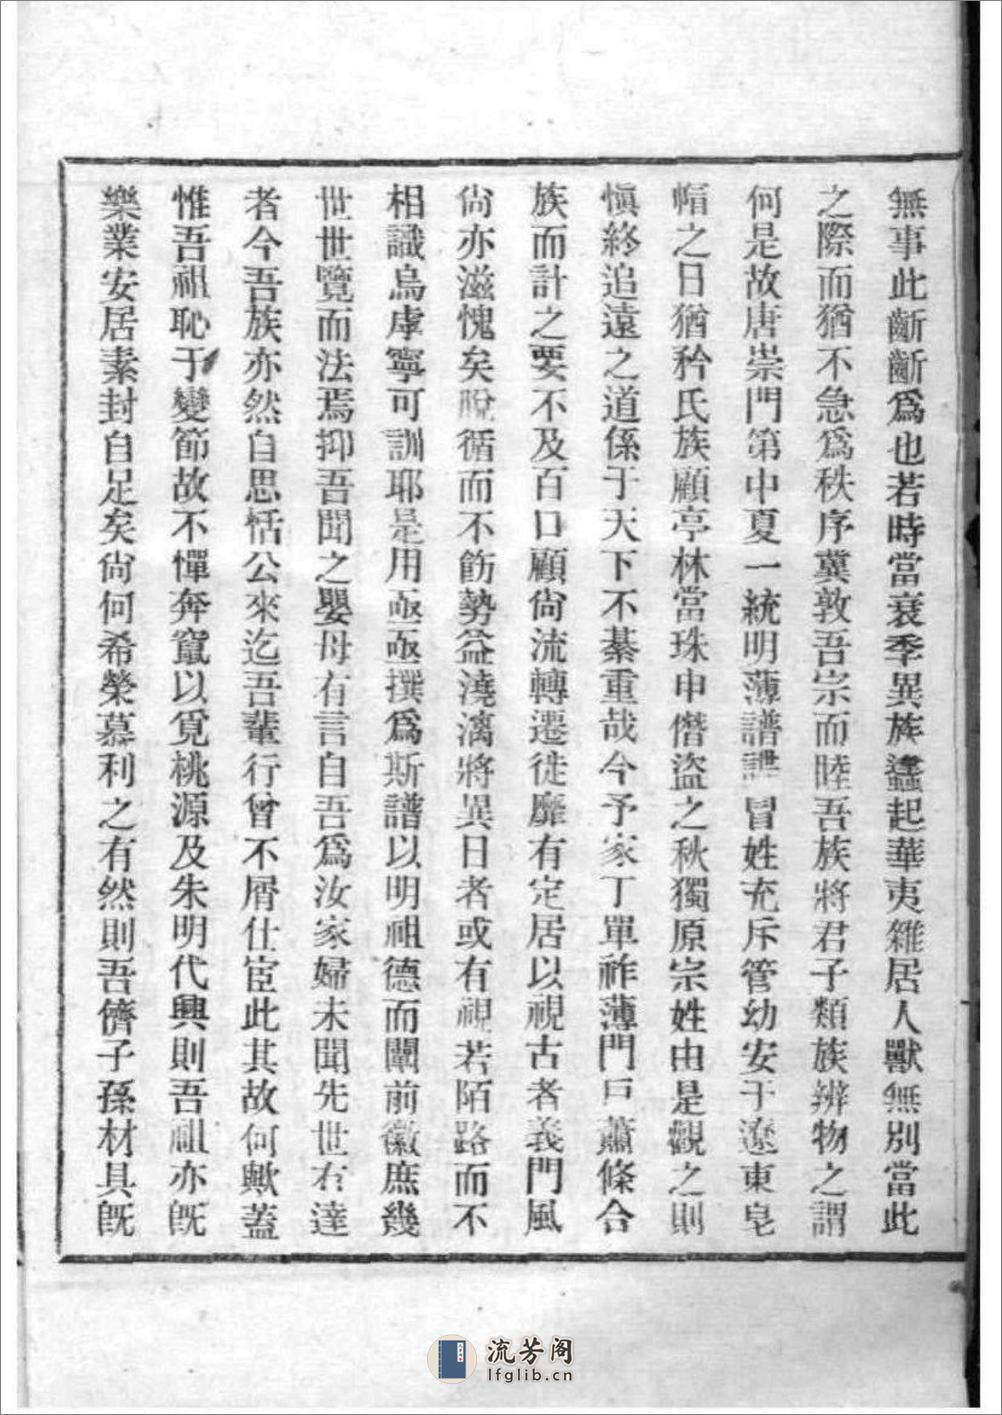 無事此齗齗爲也若時當衰季異族蠭起華夷雜居人獸無別當此
之際而猶不急爲秩序冀敦吾宗而睦吾族將君子類族辨物之謂
何是故唐崇門第中夏一統明薄譜諜冒姓充斥管幼安于遼東皂
帽之日猶矜氏族顧亭林當珠申僭盜之秋獨原宗姓由是觀之則
愼終追遠之道係于天下不綦重哉今予家丁單祚薄門戶蕭條合
族而計之要不及百口顧尙流轉遷徙靡有定居以視古者義門風
尙亦滋愧矣脫循而不飭勢益澆漓將異日者或有視若陌路而不
相識烏虖寧可訓耶是用亟亟撰爲斯譜以明祖德而闡前徽庶幾
世世覽而法焉抑吾聞之嬰母有言自吾爲汝家婦未聞先世右達
者今吾族亦然自思恬公來迄吾輩行曾不屑仕宦此其故何歟蓋
惟吾祖恥于變節故不憚奔竄以覓桃源及朱明代興則吾祖亦旣
樂業安居素封自足矣尙何希榮慕利之有然則吾儕子孫材具旣
流芳阁
lfglib.cn